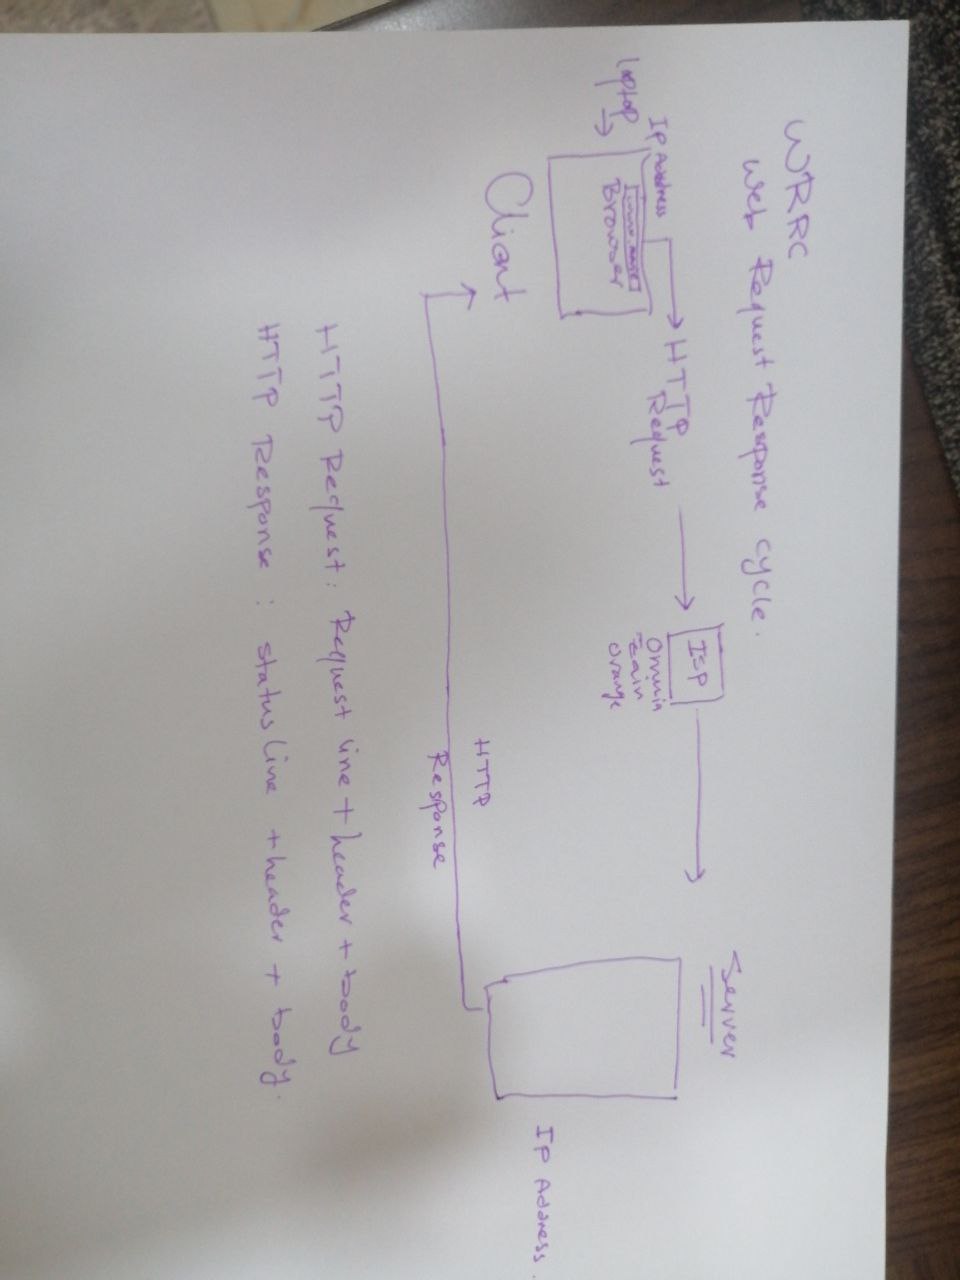 WRRC
Web Request Response cycle.
Ip Address
laptop
Browser
Cliant
HTTP
Request
ISP
Omnia
Zain
orange
Server
Ip Address.
HTTP
Response
HTTP Request: Request line + header + body
HTTP Response : status line + header + body.